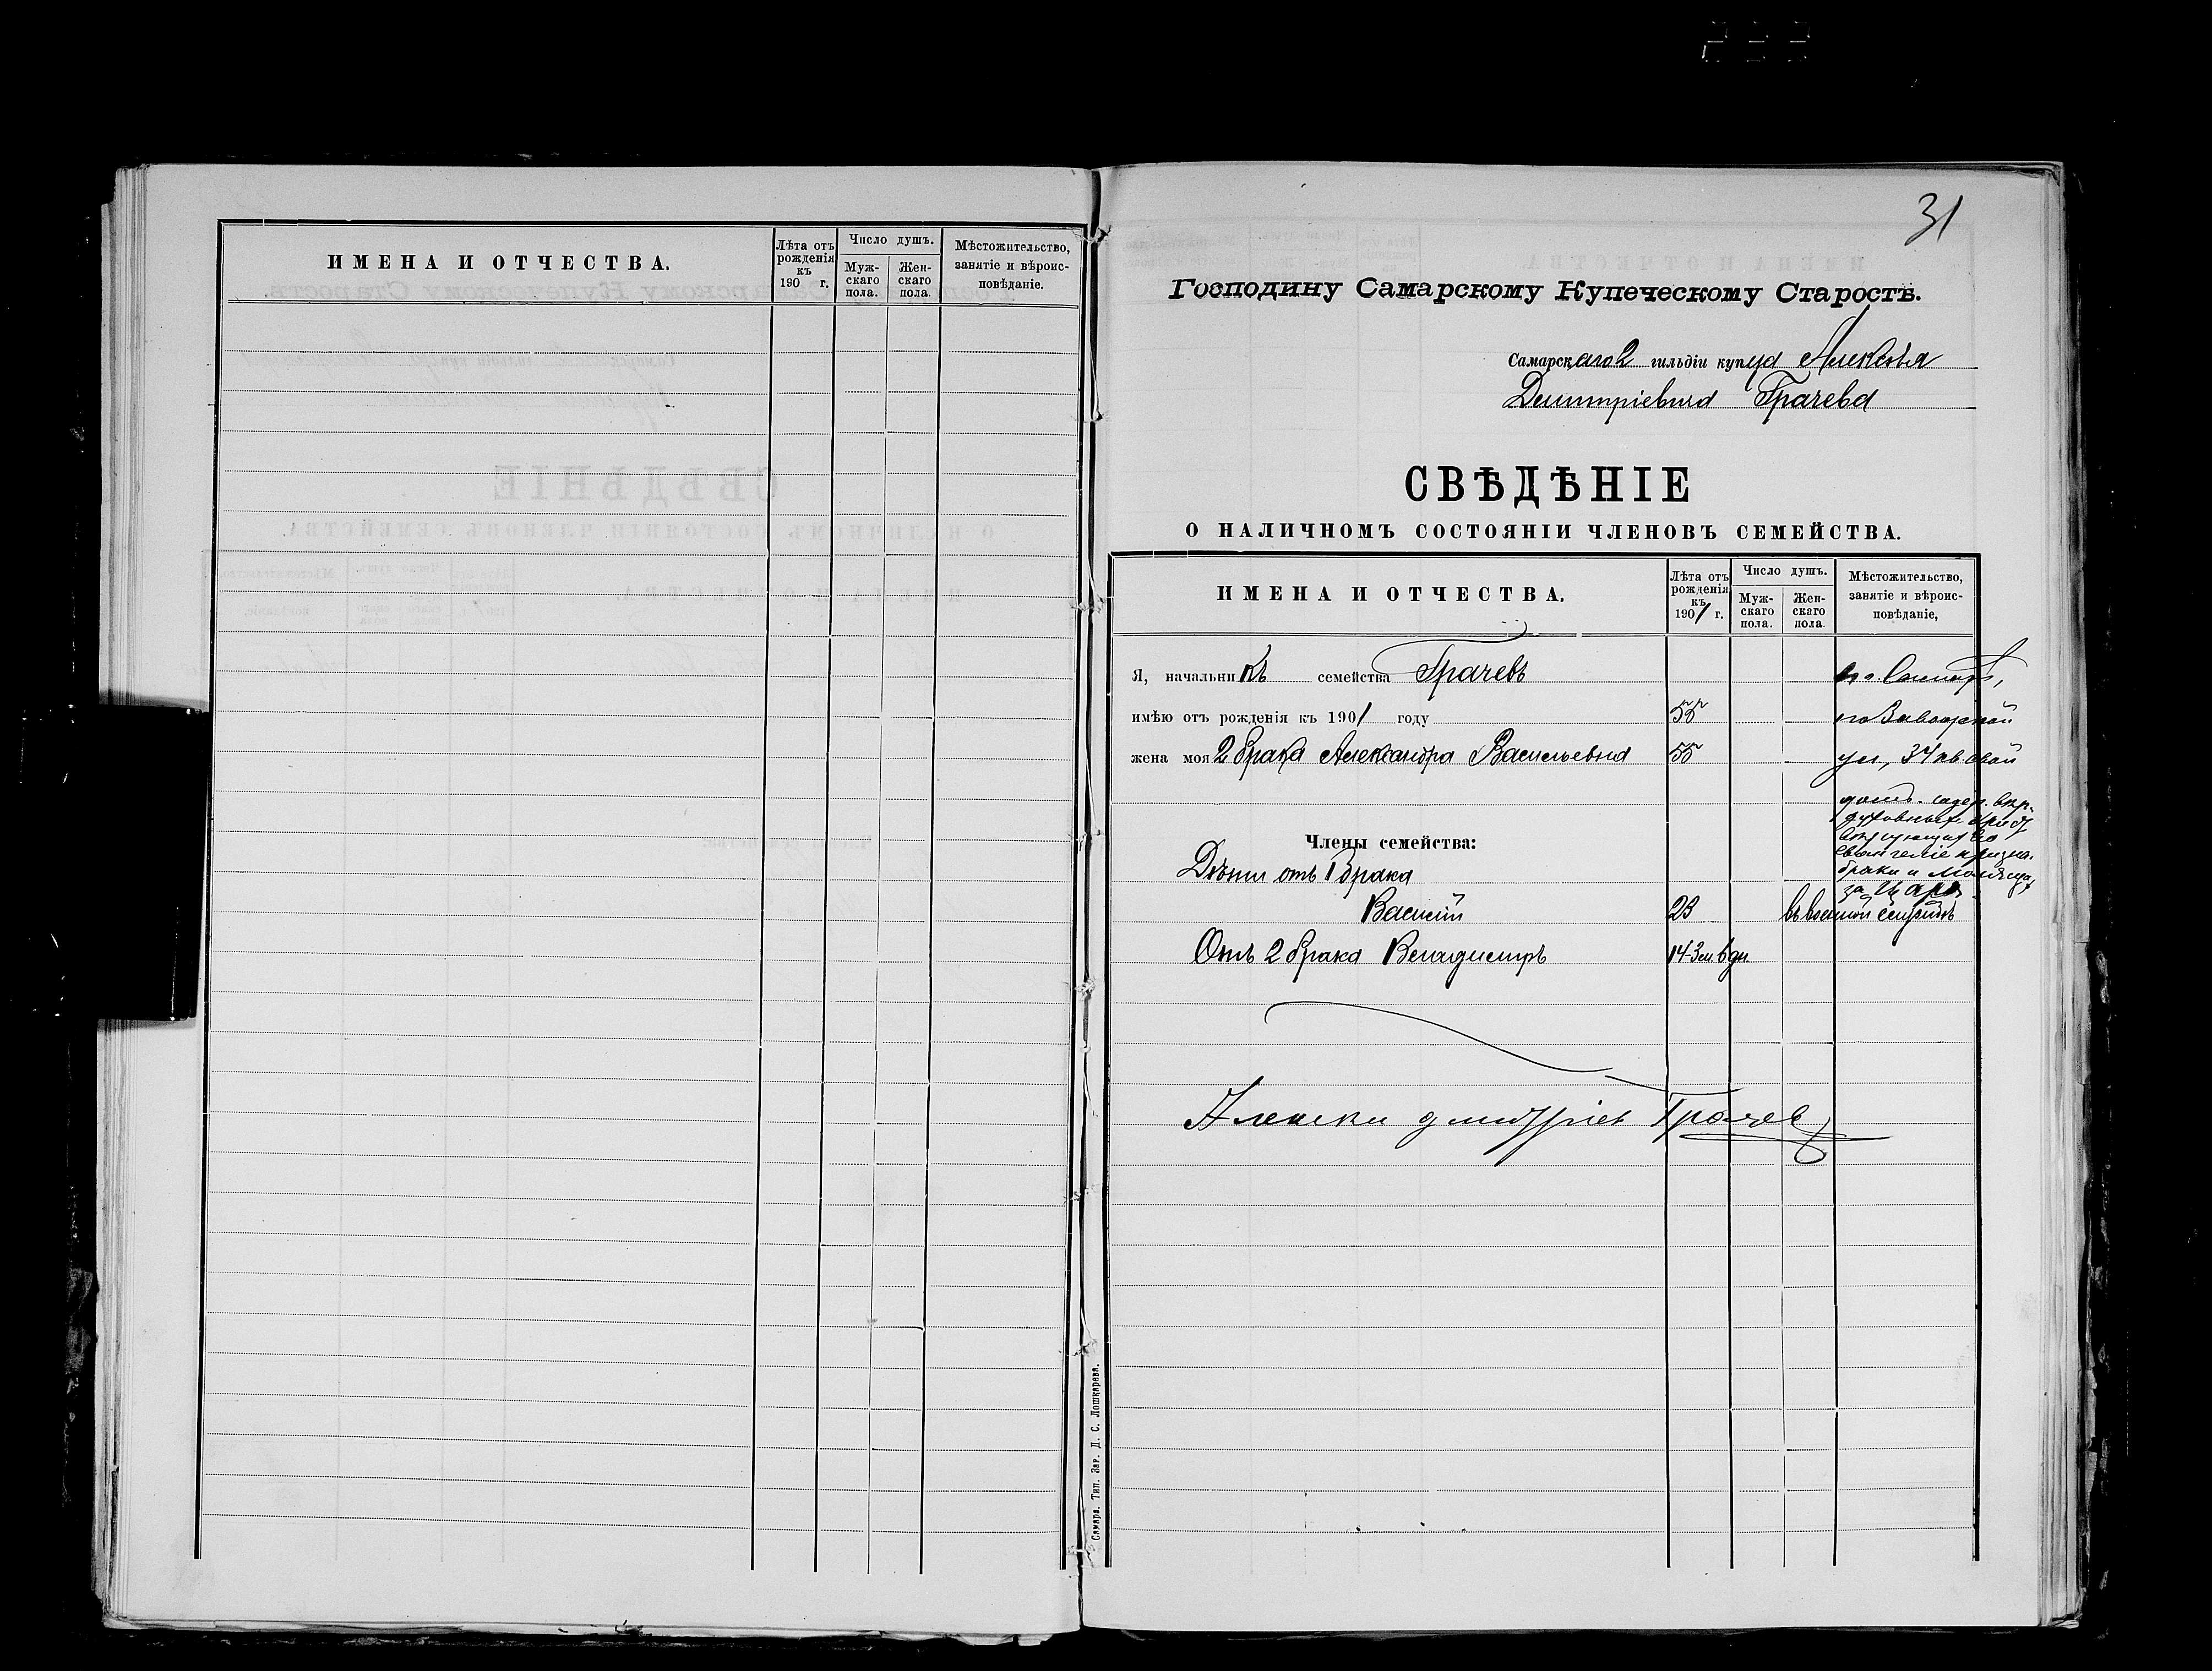 ИМЕНА И ОТЧЕСТВА.
Лѣта отъ рожденія къ 190 г.
Число душъ.
Мужскаго пола.
Женскаго пола.
Мѣстожительство, занятіе и вѣроисповѣданіе.
31
Господину Самарскому Купеческому Старостѣ.
Самарскаго 2 гильдіи купца Алексѣя
Дмитріевича Грачева
СВѢДѢНІЕ
О НАЛИЧНОМЪ СОСТОЯНІИ ЧЛЕНОВЪ СЕМЕЙСТВА.
ИМЕНА И ОТЧЕСТВА.
Лѣта отъ рожденія къ 1901 г.
Число душъ.
Мужскаго пола.
Женскаго пола.
Мѣстожительство, занятіе и вѣроисповѣданіе,
Я, начальникъ семейства Грачевъ
имѣю отъ рожденія къ 1901 году 55
жена моя 2 брака Александра Васильевна 55 ул., 34 кв. свой
домъ.
Члены семейства:
Дѣти отъ 1 брака
браки и
за Царя
Василій 23 въ военной
Отъ 2 брака Владимиръ 14-3 м. 6 дн.
Алексѣи дмитріев Грачев
Самара. Тип. Зав. Д. С. Лошкарева.